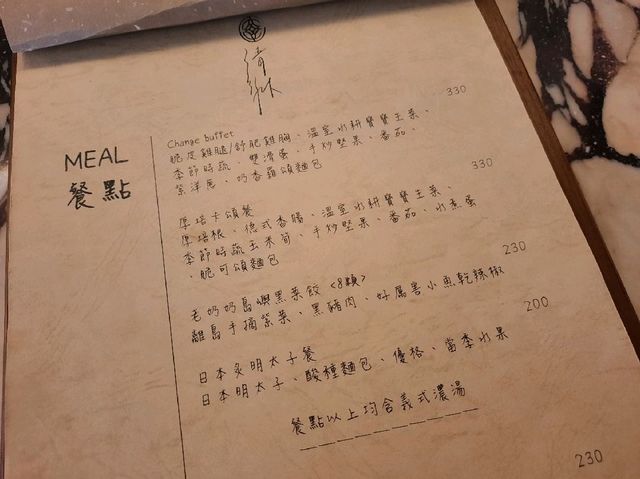 MEAL
餐點
Change buffet 330
脆皮雞腿/舒肥雞胸、溫室水耕寶寶生菜、
季節時蔬、雙滑蛋、手炒堅果、番茄、
紫洋蔥、奶香羅頌麵包
厚培卡頌餐 330
厚培根、德式香腸、溫室水耕寶寶生菜、
季節時蔬玉米筍、手炒堅果、番茄、水煮蛋
、脆可頌麵包
老奶奶島嶼黑菜餃<8顆> 230
離島手摘紫菜、黑豬肉、好厲害小魚乾辣椒
日本炙明太子餐 200
日本明太子、酸種麵包、優格、當季水果
餐點以上均含義式濃湯
230